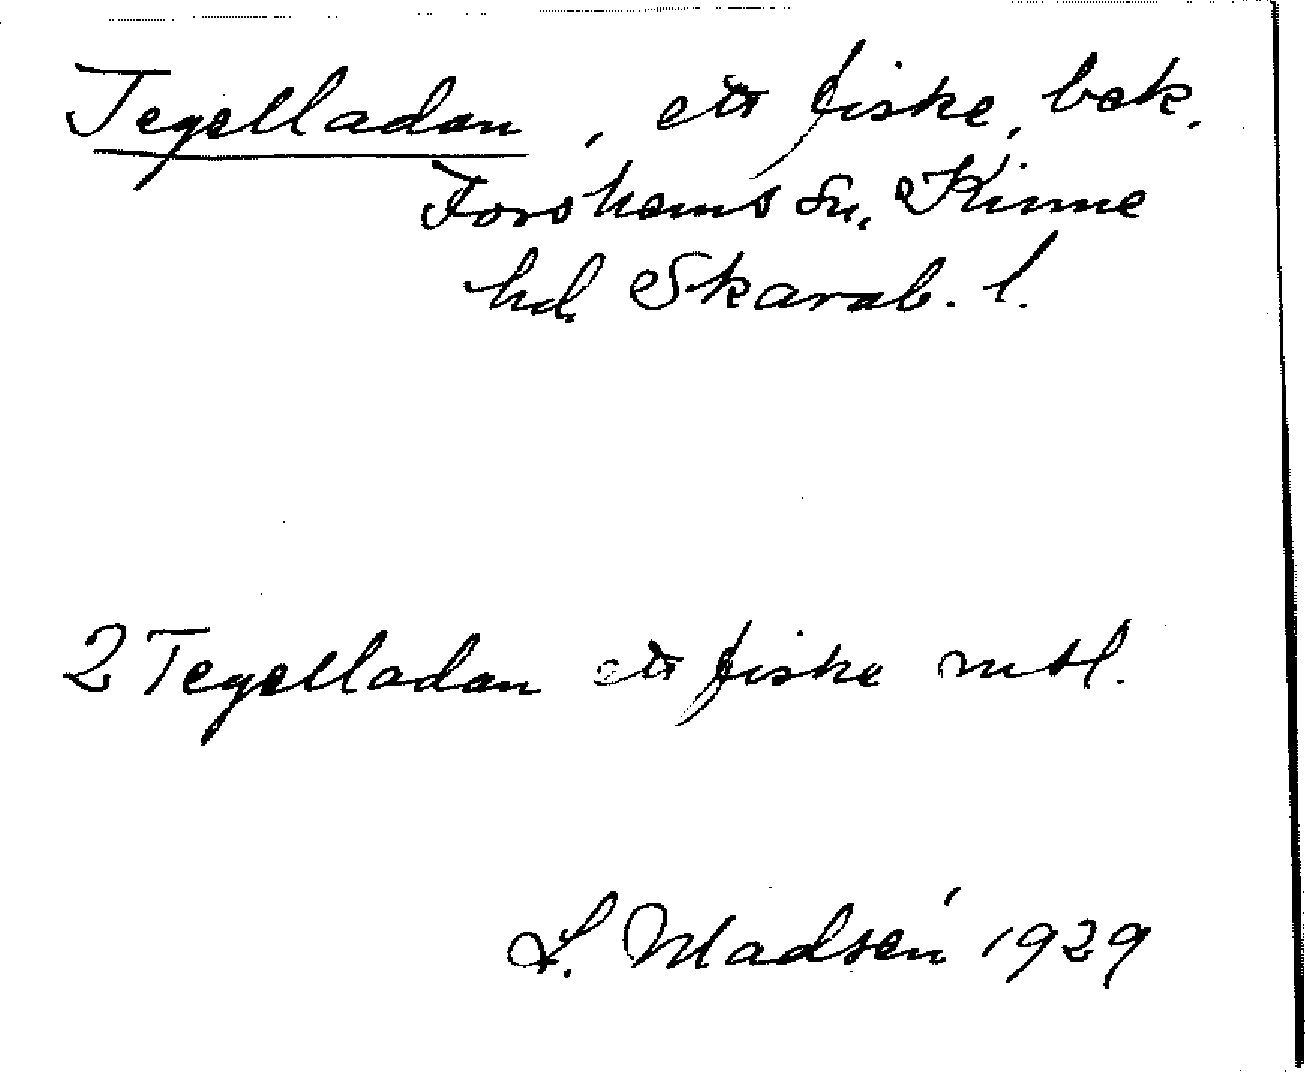 Tegelladan, ett fiske, bek.
Forshems sn, Kinne
hd. Skarab. l.
2 Tegelladan ett fiske mtl.
L. Madsén 1929